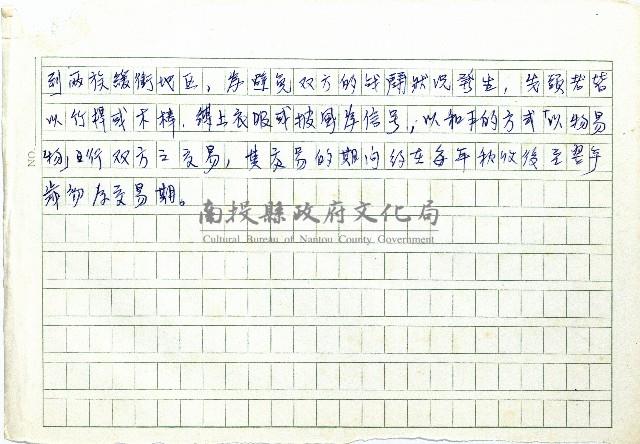 到兩族緩衝地区，為避免双方的战鬪狀況発生，先頭者皆
以竹桿或木棒，綁上衣服或披風為信号，以和平的方式「以物易
物」進行双方之交易，其交易的期间約在每年秋收後至翌年
歲初為交易期。
南投縣政府文化局
Cultural Bureau of Nantou County Government
NO.